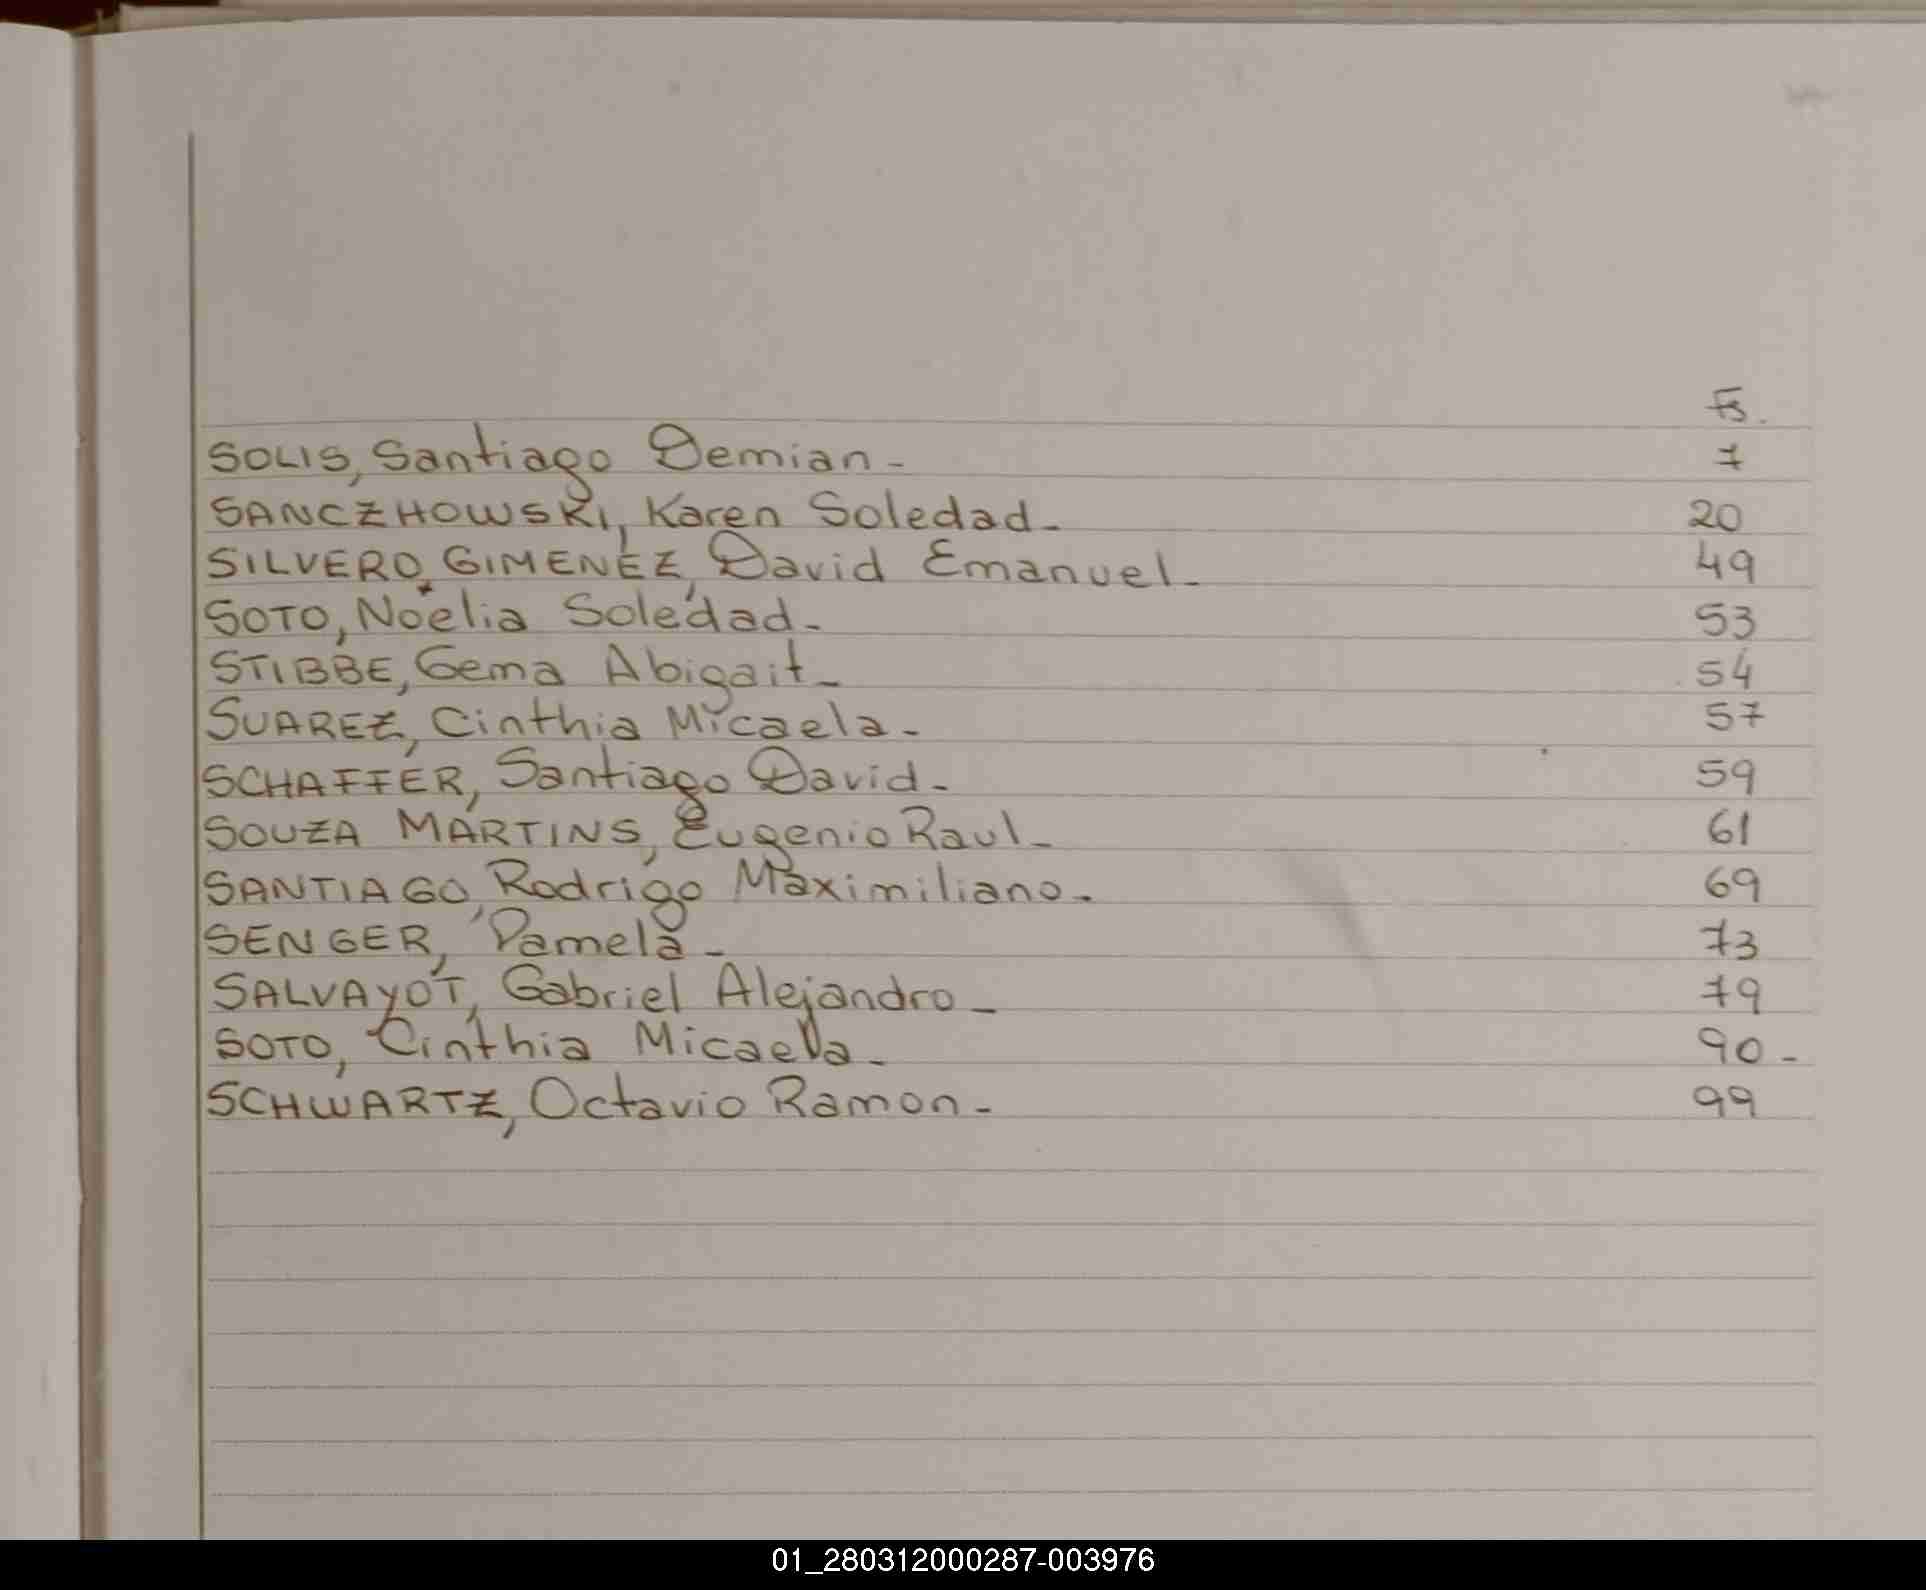 Fs.
SOLIS, Santiago Demian - 7
SANCZHOWSKI, Karen Soledad - 20
SILVERO GIMENEZ, David Emanuel - 49
SOTO, Noelia Soledad - 53
STIBBE, Gema Abigait - 54
SUAREZ, Cinthia Micaela - 57
SCHAFFER, Santiago David - 59
SOUZA MARTINS, Eugenio Raul - 61
SANTIAGO, Rodrigo Maximiliano - 69
SENGER, Pamela - 73
SALVAYOT, Gabriel Alejandro - 79
SOTO, Cinthia Micaela - 90 -
SCHWARTZ, Octavio Ramon - 99
01_280312000287-003976